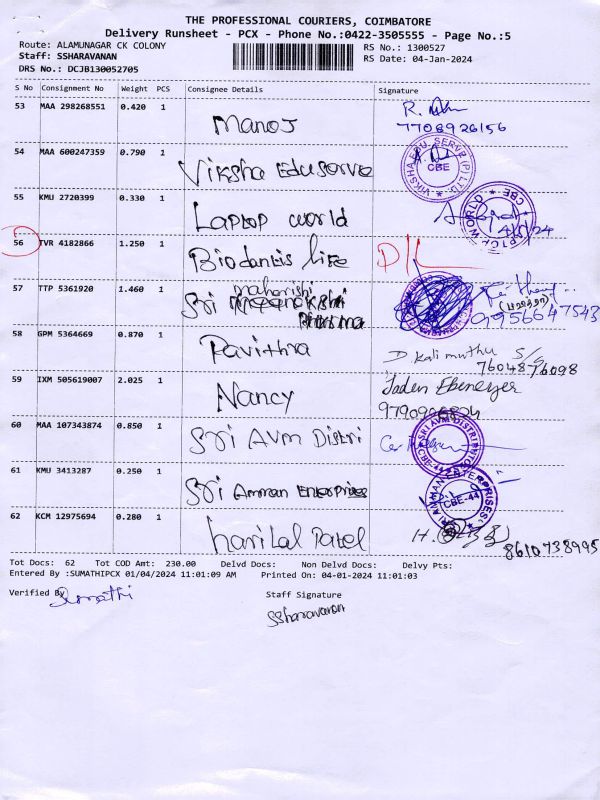 THE PROFESSIONAL COURIERS, COIMBATORE
Delivery Runsheet - PCX - Phone No.:0422-3505555 - Page No.:5
Route: ALAMUNAGAR CK COLONY
RS No.: 1300527
Staff: SSHARAVANAN
RS Date: 04-Jan-2024
DRS No.: DCJB130052705
S No Consignment No Weight PCS Consignee Details Signature
53 MAA 298268551 0.420 1 Manoj R.
7708926156
54 MAA 600247359 0.790 1 Viksha Eduserve VIKSHA EDU SERVE (P) LTD. CBE
55 KMU 2720399 0.330 1 Laptop world LAPTOP WORLD CBE
56 TVR 4182866 1.250 1 Biodantis life D/L
57 TTP 5361920 1.460 1 Sri maharishi
Pharma
9956647543
58 GPM 5364669 0.870 1 Pavithra D. Kalimuthu S/S
7604876098
59 IXM 505619007 2.025 1 Nancy Jaden Ebenezer
60 MAA 107343874 0.850 1 Sri Avm Distri SRI AVM DISTRIBUTORS CBE-44
61 KMU 3413287 0.250 1 Sri Amman Enterprises SRI AMMAN ENTERPRISES CBE-44
62 KCM 12975694 0.280 1 harilal Patel H.
8610738995
Tot Docs: 62 Tot COD Amt: 230.00 Delvd Docs: Non Delvd Docs: Delvy Pts:
Entered By :SUMATHIPCX 01/04/2024 11:01:09 AM Printed On: 04-01-2024 11:01:03
Verified By Sumathi
Staff Signature
SSharavanan